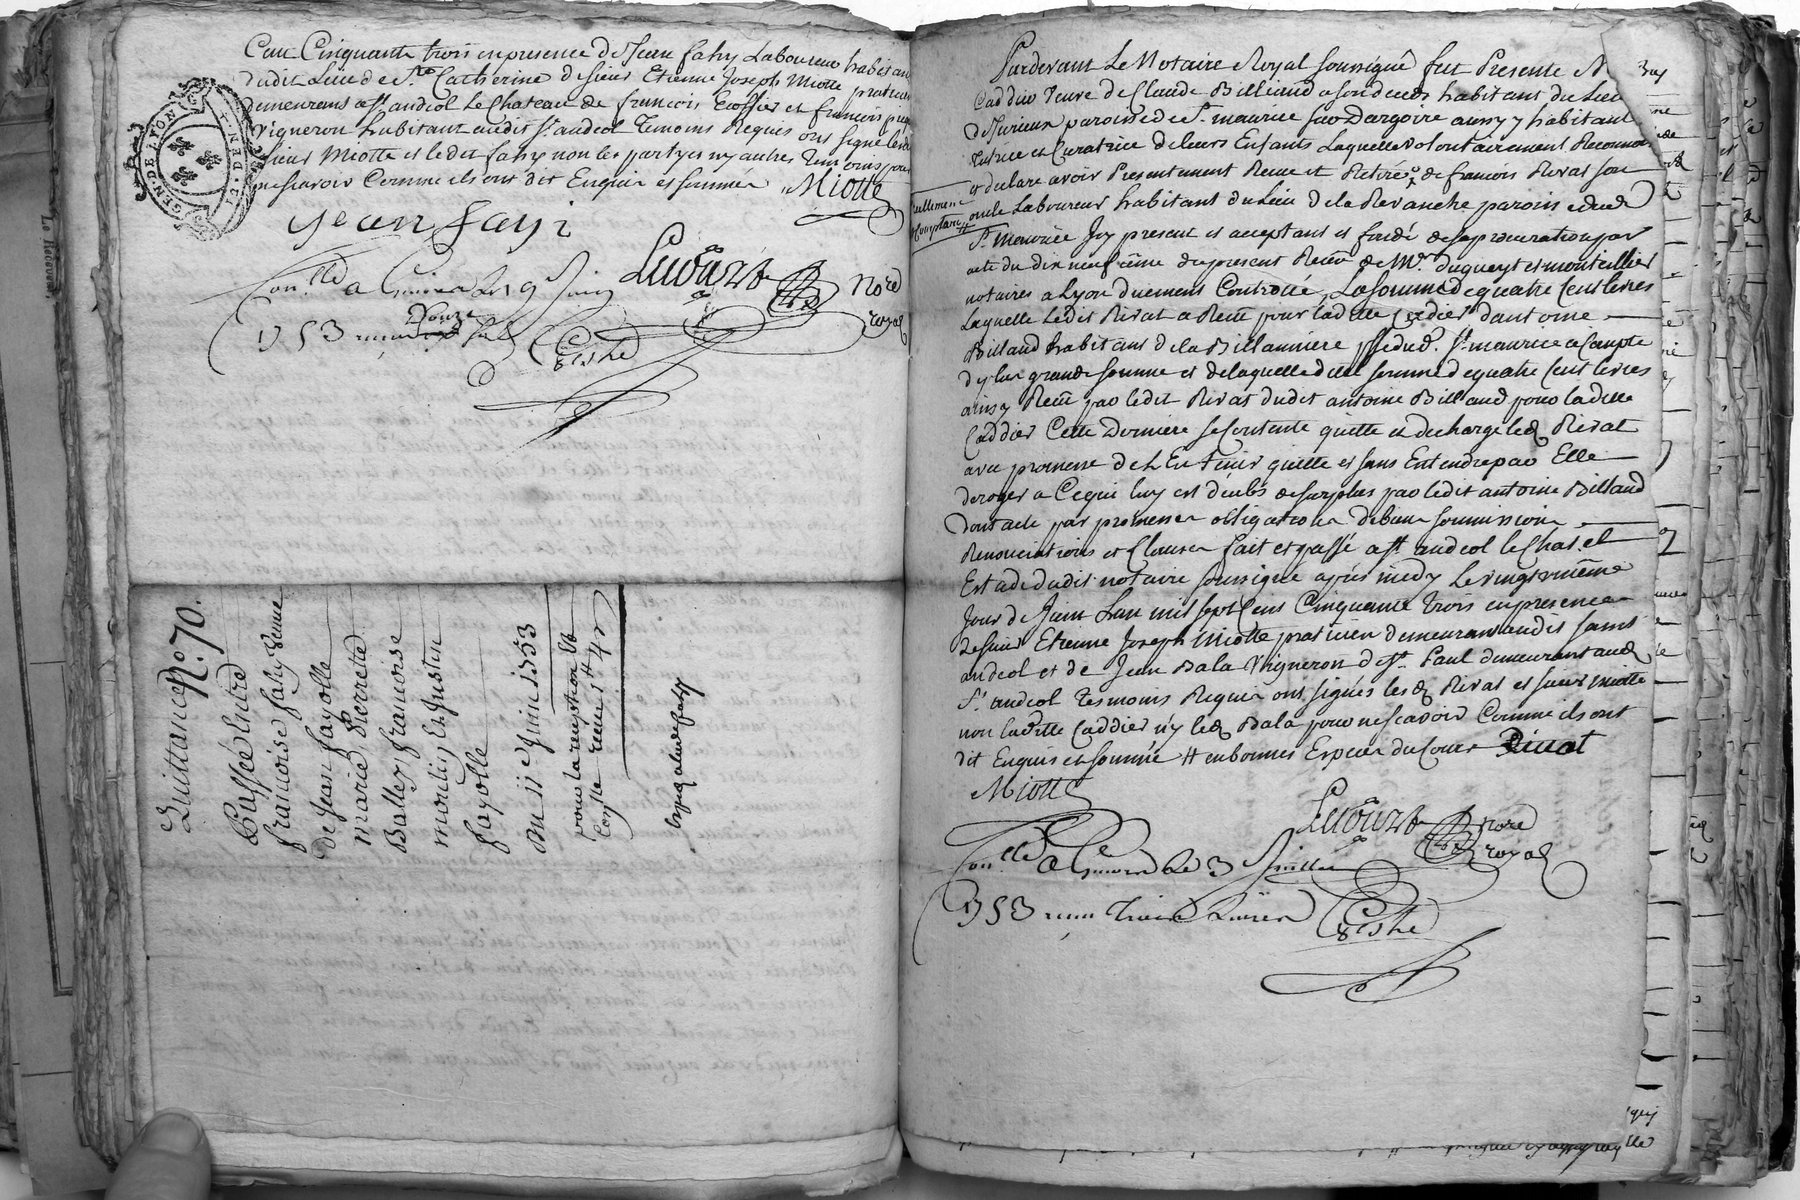 Cent Cinquante trois en presence de Jean fahy Laboureur habitant
dudit Lieu de Ste Catherine de sieur Etienne Joseph Miotte praticien
demeurans a st andeol Le Chateau de francois et francois
Vigneron habitant audit st andeol Temoins Requis ont signé
sieur Miotte et ledit fahy non les partyes ny autres Temoins pour
ne scavoir Comme ils ont dit Enquis et sommés Miotte
GEN. DE LYON
jean fayi
Con.llé a Givors Le 19 Juin
1753 Douze sols
Nore
royal
Quittance No. 70.
Passée Entre
francoise fahy veuve
de Jean fayolle
marie Pierrette
Ballet francoise
moulin Et Justin
fayolle
Du 11 Juin 1753
pour la reception
Coste
Surdevant Le Notaire Royal soussigné fut Presente
Caddier Veuve de Claude Billiand a son deces habitant du Lieu
de Jurieux paroisse de St. maurice sur Dargoire aussy y habitant
Tutrice et Curatrice de leurs Enfants Laquelle volontairement Reconnoit
et declare avoir Presentement Receu et Retiré de francois Rivat son
reellement
Comptant
oncle Laboureur habitant du Lieu de la Revanche paroisse dud
St. Maurice Icy present et acceptant et fondé de sa procuration par
acte du dix neufvieme du present Receu de Me. duqueyt et montellier
notaires a Lyon duement Controllé, La somme de quatre Cent Livres
Laquelle Ledit Rivat a Receu pour ladite Caddier d'antoine
Billand habitant de la Billanniere psse dud. St. maurice a Compte
de plus grande somme et de laquelle dite somme de quatre Cent Livres
ainsy Receu par ledit Rivat dudit antoine Billand pour ladite
Caddier Cette Derniere se Contente quitte et decharge led Rivat
avec promesse de L'En tenir quitte et sans Entendre par Elle
deroger a Ce qui luy est deub de surplus par ledit antoine Billand
Dont acte par promesses obligations de biens soumissions
Renonciations et Clauses fait et passé a st andeol le Chatel
Estude dudit notaire soussigné apres midy Le vingt
Jour de Juin L'an mil sept Cent Cinquante Trois en presence
de sieur Etienne Joseph Miotte praticien demeurant audit saint
andeol et de Jean Bala Vigneron de st. Paul demeurant aud
St andeol Tesmoins Requis ont signés led Rivat et sieur Miotte
non ladite Caddier n'y led Bala pour ne scavoir Comme ils ont
dit Enquis et sommé # en bonnes Especes du Cours Rivat
Miotte
Nore
royal
Con.llé a Givors Le 3 Juillet
1753